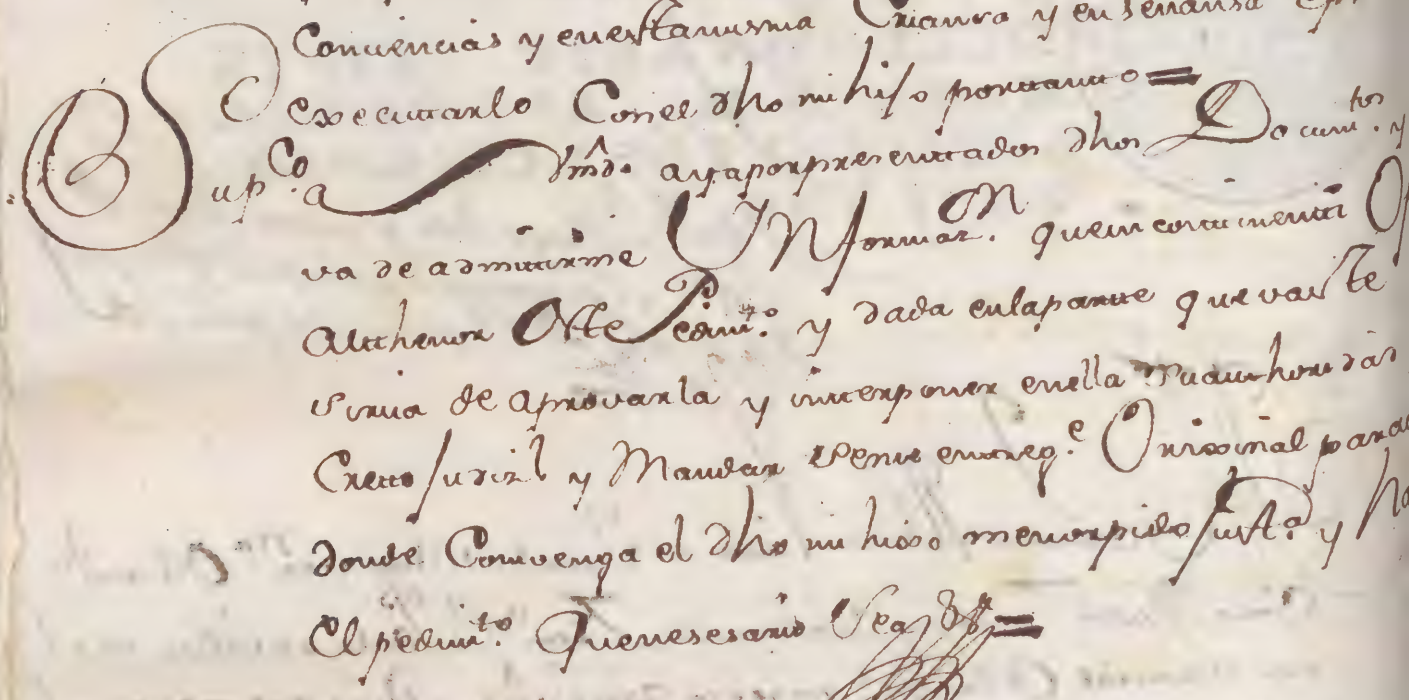 Conuencias y en esta misma Crianza y enseñansa
executarlo Con el dho mi hijo portanto =
Supco. a Vmd. aya por presentados dhos Documtos. y
va de admitirme Informaon. que in continenti
Al thenor Este Pedimto. y dada en la parte que vaste
sirva de aprovarla y interponer en ella su authoridad
Creto Judizl y Mandar se me entregue. Original para
donde Convenga el dho mi hijo menor pido Justa. y
El pedimto. que nesesario Sea &a =